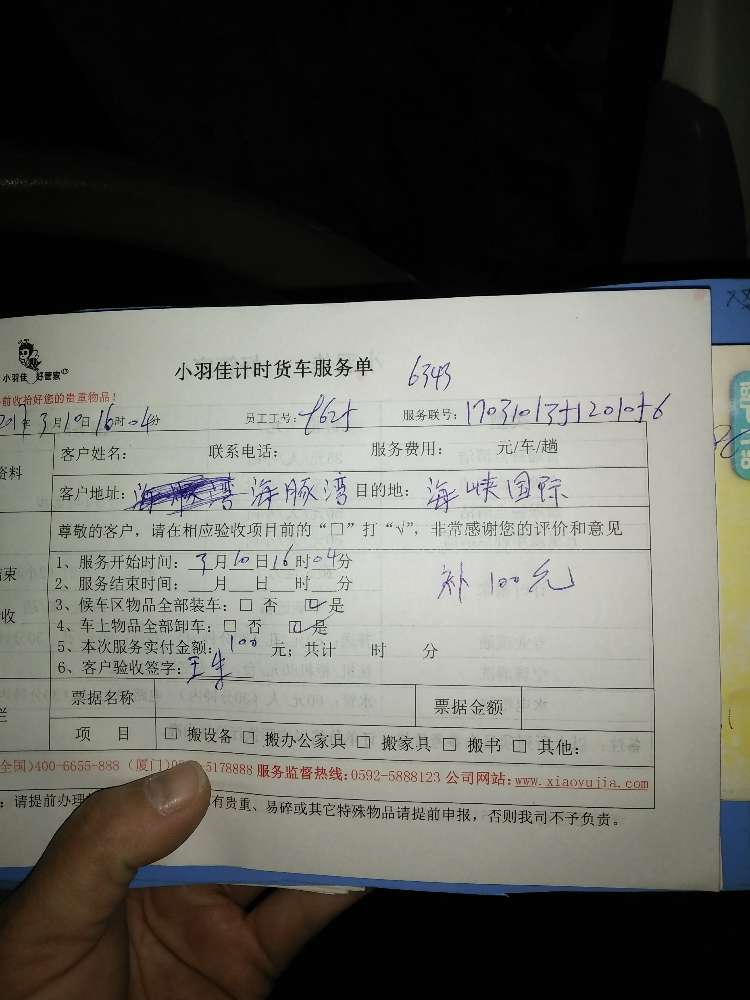 小羽佳计时货车服务单 6343
小羽佳 好管家
前收拾好您的贵重物品!
3月10日16时04分 员工工号: 服务联号:
资料
客户姓名: 联系电话: 服务费用: 元/车/趟
客户地址: 海豚湾 目的地: 海峡国际
尊敬的客户，请在相应验收项目前的“□”打“√”，非常感谢您的评价和意见
1、服务开始时间: 3月10日16时04分
补100元
2、服务结束时间: 月 日 时 分
3、候车区物品全部装车: □ 否 ☑ 是
4、车上物品全部卸车: □ 否 ☑ 是
5、本次服务实付金额: 100 元; 共计 时 分
6、客户验收签字:
票据名称 票据金额
项 目 □ 搬设备 □ 搬办公家具 □ 搬家具 □ 搬书 □ 其他:
全国)400-6655-888 (厦门) 5178888 服务监督热线:0592-5888123 公司网站:www.xiaoyujia.com
: 请提前办理 有贵重、易碎或其它特殊物品请提前申报，否则我司不予负责。